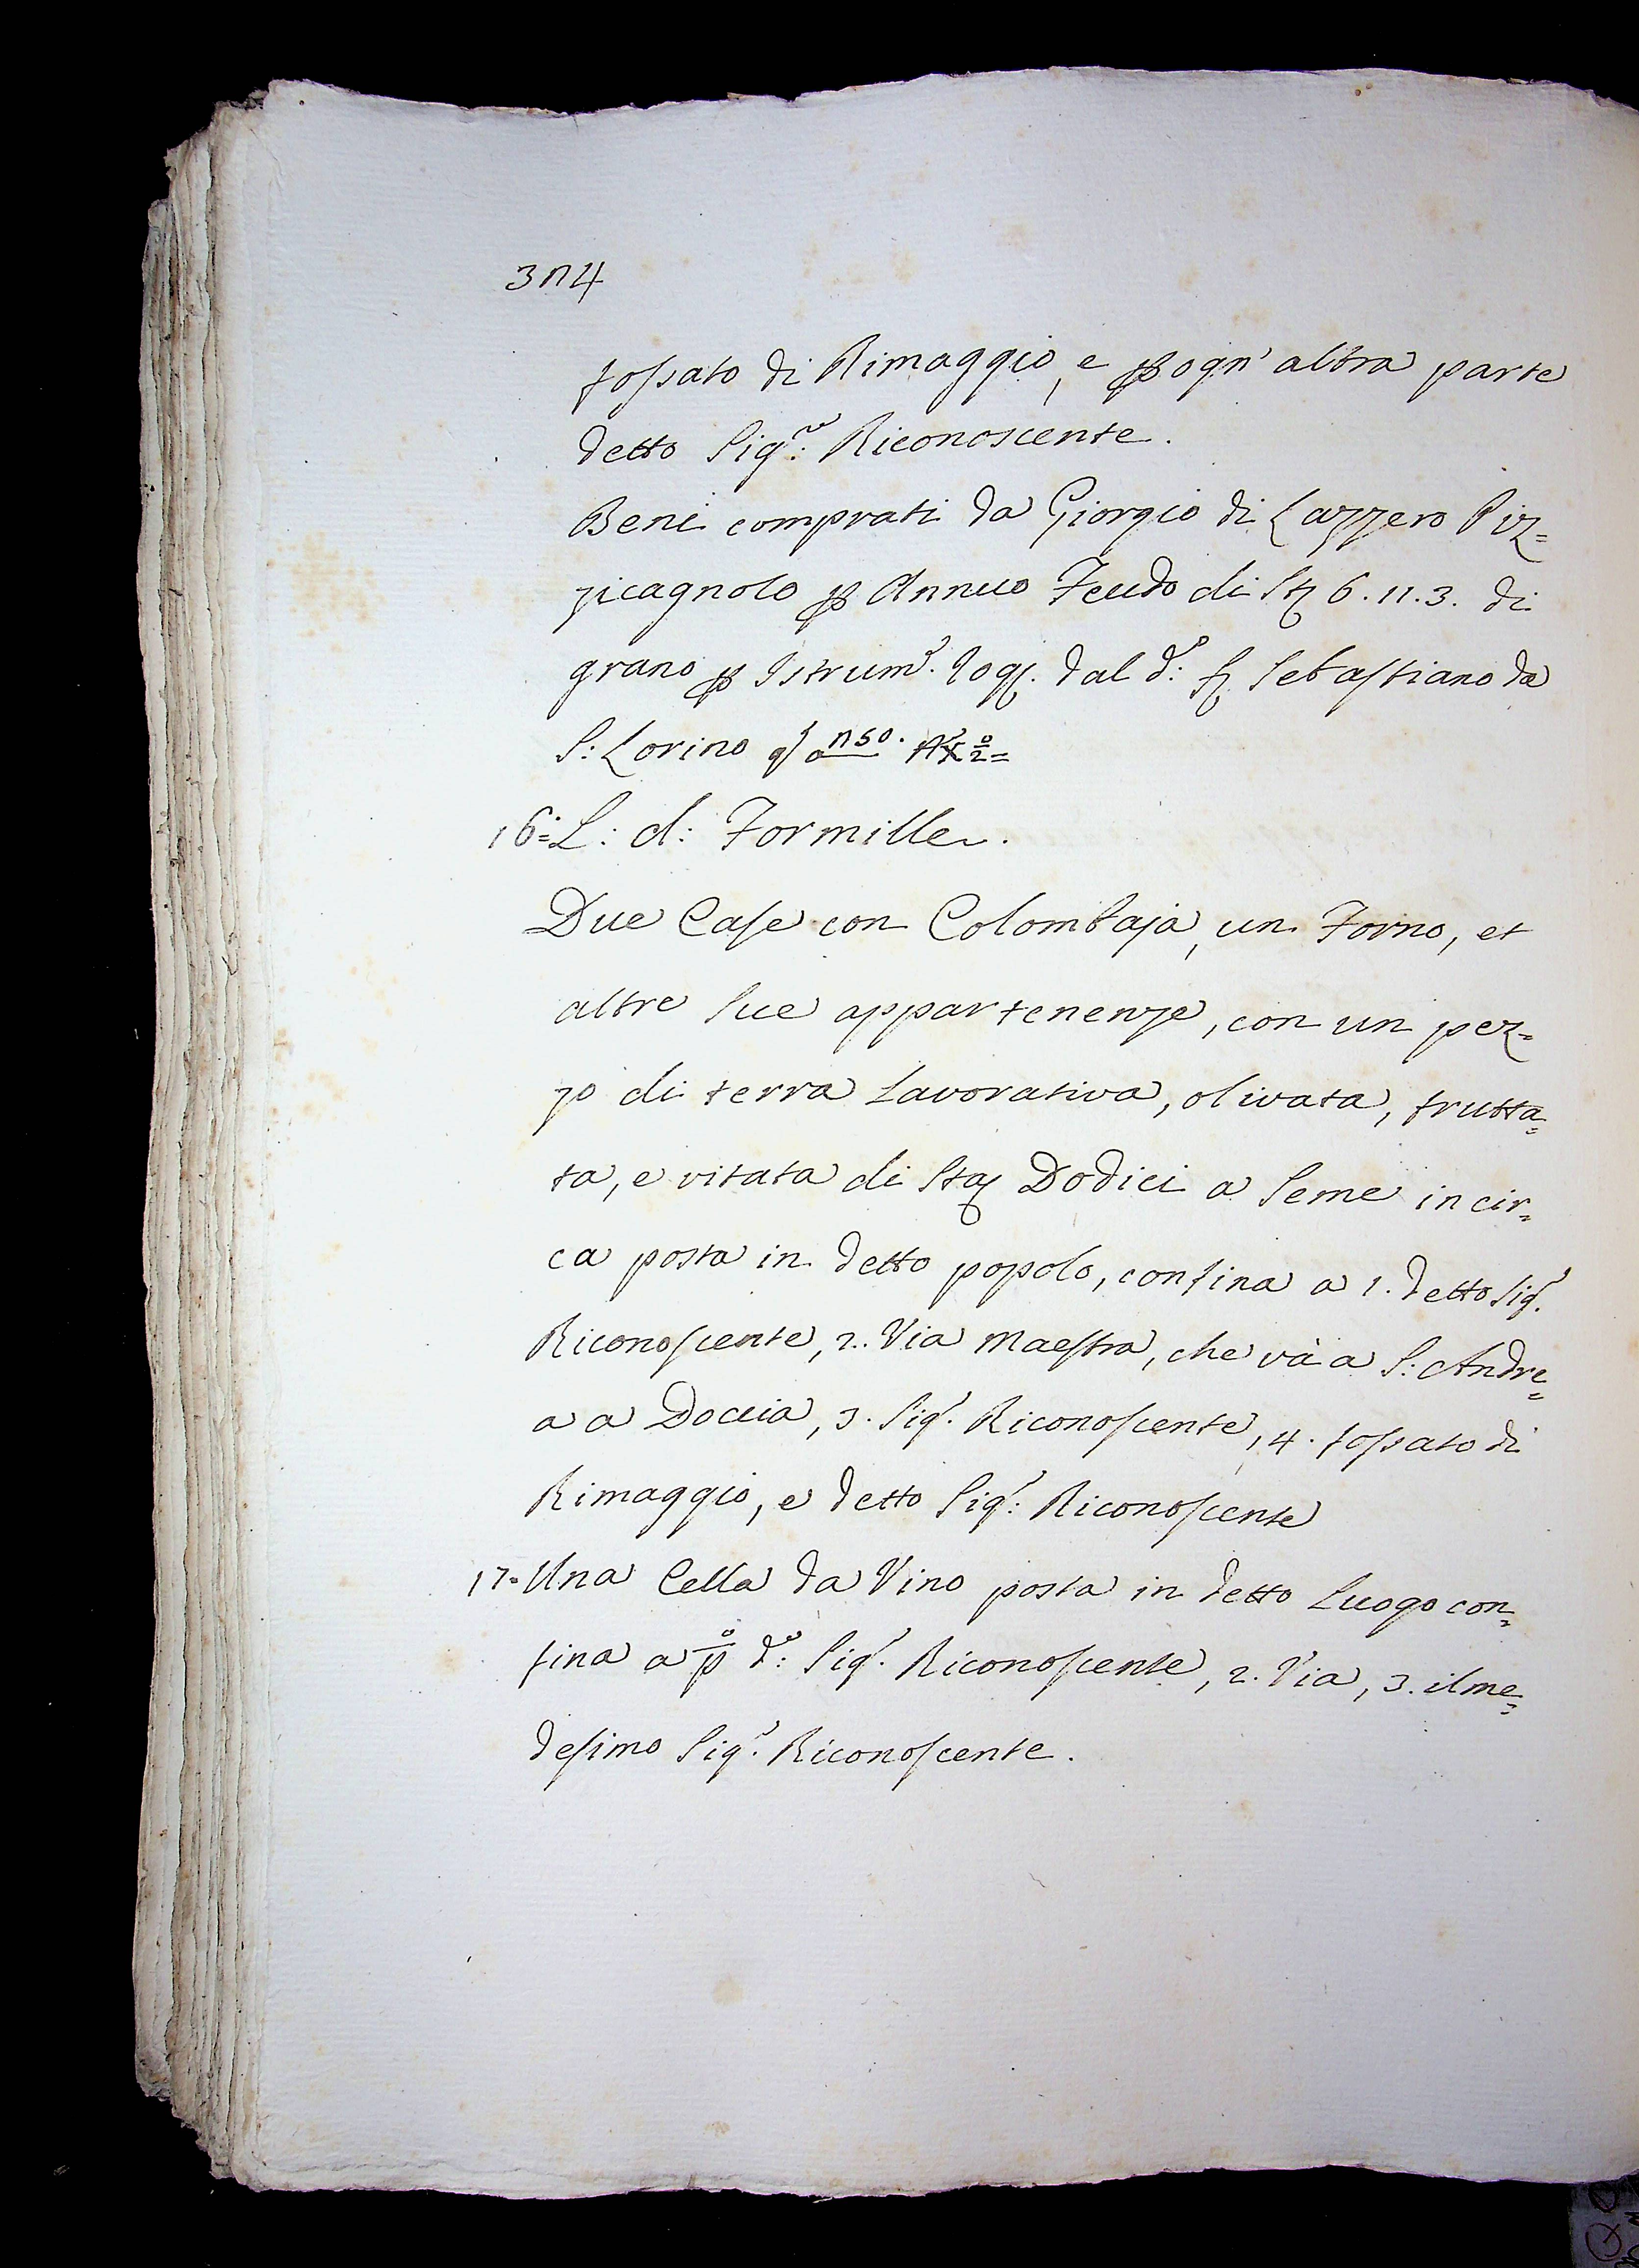 374
fossato di Rimaggio, e p ogn' altra parte
detto Sig.re Riconoscente.
Beni comprati da Giorgio di Lazzero Piz=
zicagnolo p Annuo Feudo di St 6. 11. 3. di
grano p Istrum. rog. dal d.o S Sebastiano da
S: Lorino
16= L: d: Formille.
Due Case con Colombaja, un Forno, et
altre Sue appartenenze, con un pez=
zo di terra Lavorativa, olivata, frutta=
ta, e vitata di Sta Dodici a Seme incir=
ca posta in detto popolo, confina a 1. detto Sig.r
Riconoscente, 2. Via Maestra, che và a S: Andre=
a a Doccia, 3. Sig.r Riconoscente, 4. fossato di
Rimaggio, e detto Sig.r: Riconoscente
17= Una Cella da Vino posta in detto Luogo con=
fina a p.o d.o: Sig.r Riconoscente, 2. Via, 3. il me=
desimo Sig.r Riconoscente.